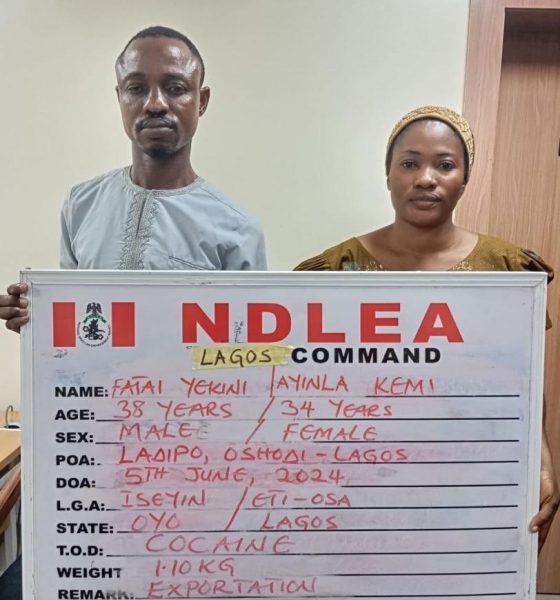 NDLEA
LAGOS COMMAND
NAME: FATAI YEKINI / AYINLA KEMI
AGE: 38 YEARS / 34 YEARS
SEX: MALE / FEMALE
POA: LADIPO, OSHODI - LAGOS
DOA: 5TH JUNE, 2024
L.G.A: ISEYIN / ETI-OSA
STATE: OYO / LAGOS
T.O.D: COCAINE
WEIGHT 1.10 KG
REMARK: EXPORTATION